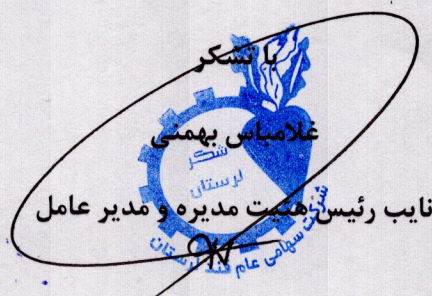 با تشکر
غلامباس بهمنی
نایب رئیس هئیت مدیره و مدیر عامل
شکر
لرستان
شرکت سهامی عام قند لرستان